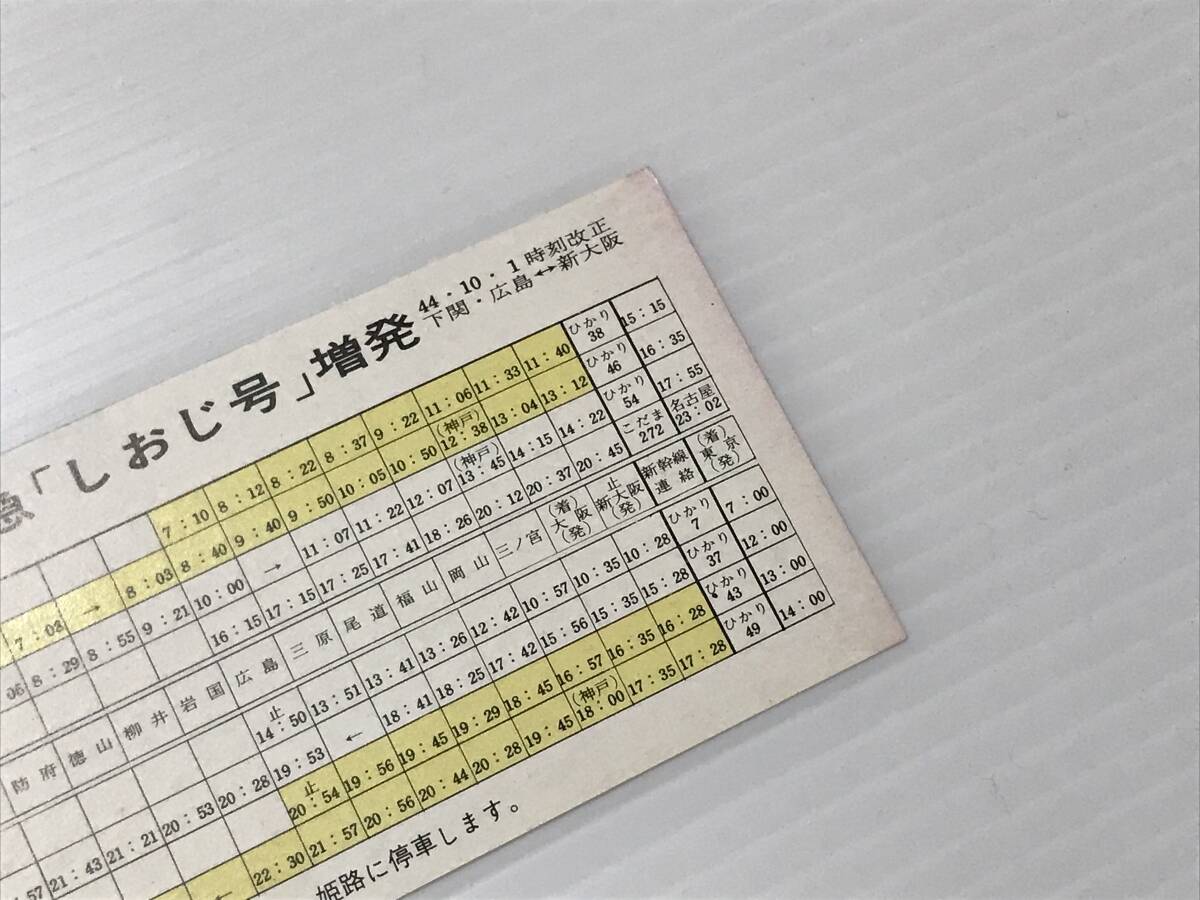 急「しおじ号」増発
44・10・1 時刻改正
下関・広島↔新大阪
7:10 8:12 8:22 8:37 9:22 11:06 11:33 11:40 ひかり38 15:15
7:03 → 8:03 8:40 9:40 9:50 10:05 10:50 (神戸)12:38 13:04 13:12 ひかり46 16:35
8:29 8:55 9:21 10:00 → 11:07 11:22 12:07 (神戸)13:45 14:15 14:22 ひかり54 17:55
16:15 17:15 17:25 17:41 18:26 20:12 20:37 20:45 こだま272 名古屋23:02
防府 徳山 柳井 岩国 広島 三原 尾道 福山 岡山 三ノ宮 (着)大阪(発) 止新大阪(発) 新幹線連絡 (着)東京(発)
止14:50 13:51 13:41 13:26 12:42 10:57 10:35 10:28 ひかり7 7:00
:57 21:43 21:21 20:53 20:28 19:53 ← 18:41 18:25 17:42 15:56 15:35 15:28 ひかり37 12:00
止20:54 19:56 19:45 19:29 18:45 16:57 16:35 16:28 ひかり43 13:00
← 22:30 21:57 20:56 20:44 20:28 19:45 (神戸)18:00 17:35 17:28 ひかり49 14:00
姫路に停車します。